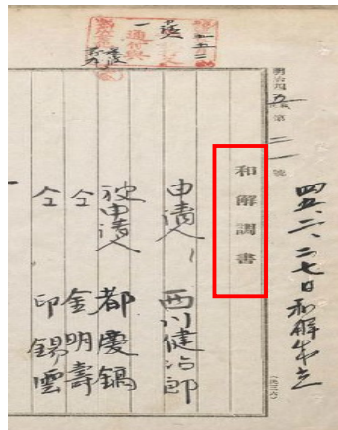 四五、二、二七日和解成立
第二一號
和解調書
申請人 西川健治郎
被申請人 都慶鎬
仝 金明壽
仝 印錫雲